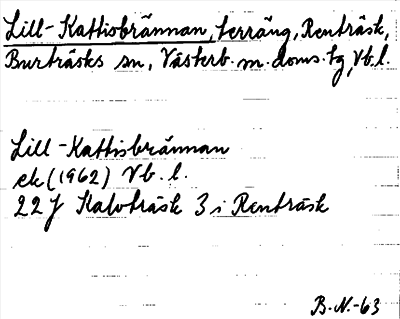 Lill-Kattisbrännan, terräng, Renträsk,
Burträsks sn, Västerb. m. doms. tg, Vb.l.
Lill-Kattisbrännan
ek (1962) Vb. l.
22 J Kalvträsk 3 i Renträsk
B.N.-63